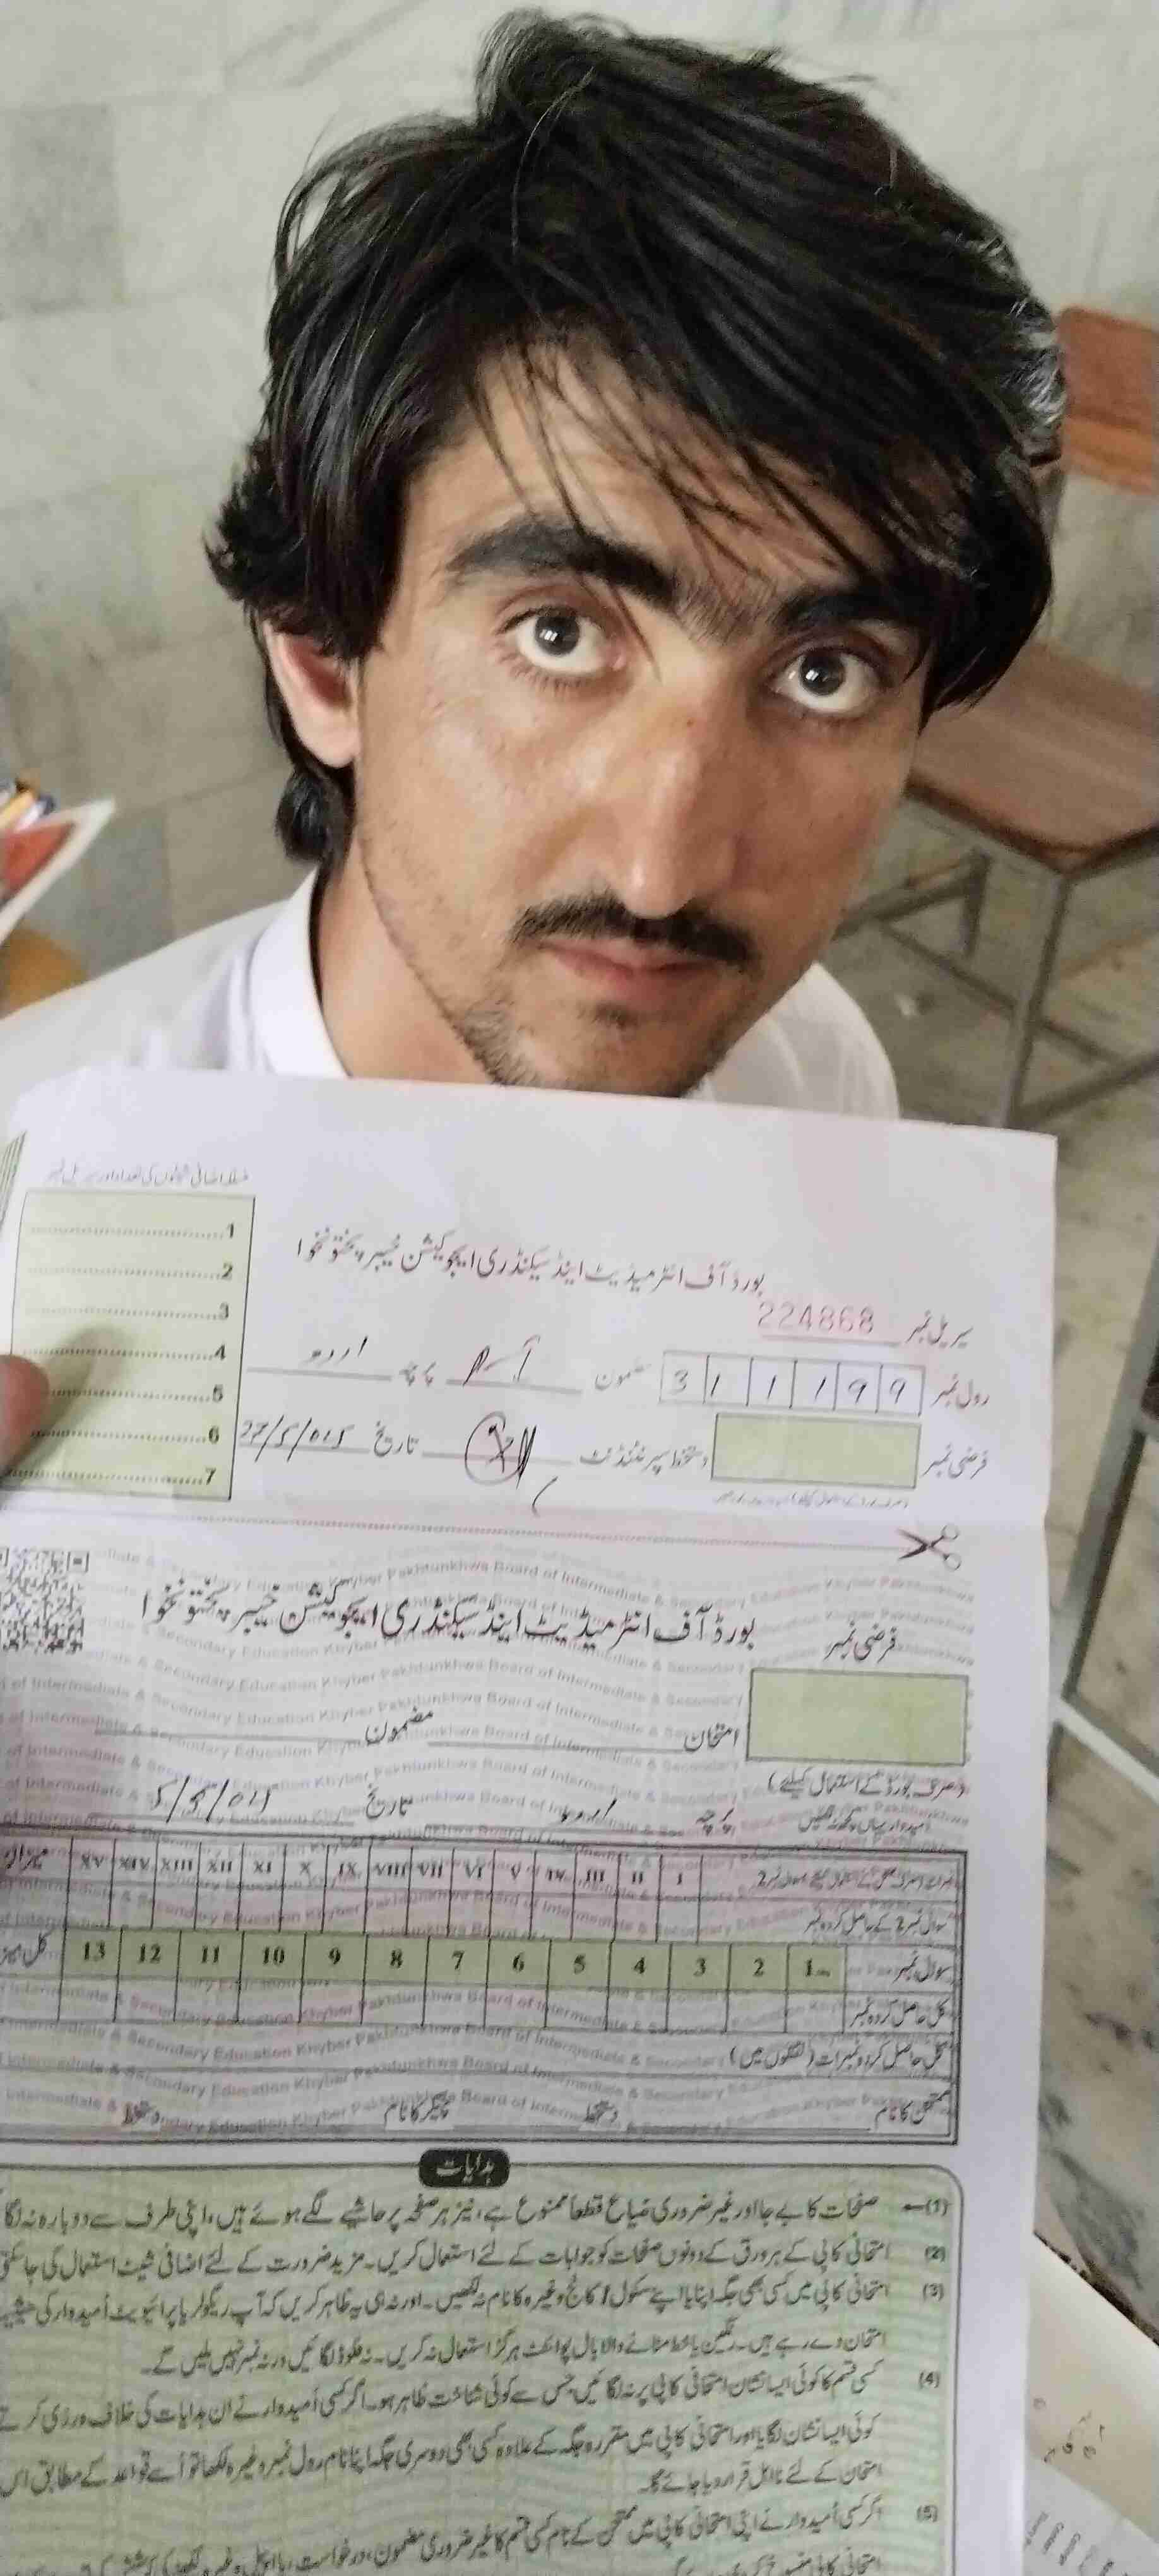 1
2
3
4
5
6
7
بورڈ آف انٹرمیڈیٹ اینڈ سیکنڈری ایجوکیشن خیبر پختونخوا
سیریل نمبر 224868
رول نمبر 311199 مضمون پرچہ اردو
فرضی نمبر دستخط سپرنٹنڈنٹ تاریخ 27/5/025
بورڈ آف انٹرمیڈیٹ اینڈ سیکنڈری ایجوکیشن خیبر پختونخوا
فرضی نمبر
امتحان مضمون
(صرف بورڈ کے استعمال کیلئے)
امیدوار یہاں کچھ نہ لکھیں
پرچہ اردو تاریخ
I II III IV V VI VII VIII IX X XI XII XIII XIV XV میزان
سوال نمبر 2 کے حاصل کردہ نمبر
سوال نمبر 1 2 3 4 5 6 7 8 9 10 11 12 13
کل حاصل کردہ نمبر
کل حاصل کردہ نمبرات (لفظوں میں)
ممتحن کا نام دستخط چیکر کا نام دستخط
ہدایات
(1) صفحات کا بے جا اور غیر ضروری ضیاع قطعاً ممنوع ہے، نیز ہر صفحہ پر حاشیے لگے ہوئے ہیں، اپنی طرف سے دوبارہ نہ لگا
(2) امتحانی کاپی کے ہر ورق کے دونوں صفحات کو جوابات کے لئے استعمال کریں۔ مزید ضرورت کے لئے اضافی شیٹ استعمال کی جا سکتی
(3) امتحانی کاپی میں کسی بھی جگہ اپنا یا اپنے سکول/کالج وغیرہ کا نام نہ لکھیں۔ اور نہ ہی یہ ظاہر کریں کہ آپ ریگولر یا پرائیویٹ اُمیدوار کی
امتحان دے رہے ہیں۔ رنگین یا خط مٹانے والا بال پوائنٹ ہرگز استعمال نہ کریں۔ نہ فلوڈ لگائیں ورنہ نمبر نہیں ملیں گے۔
(4) کسی قسم کا کوئی ایسا نشان امتحانی کاپی پر نہ لگائیں جس سے کوئی شناخت ظاہر ہو۔ اگر کسی اُمیدوار نے ان ہدایات کی خلاف ورزی کرتے
کوئی ایسا نشان لگایا اور امتحانی کاپی میں مقررہ جگہ کے علاوہ کسی بھی دوسری جگہ اپنا نام رول نمبر وغیرہ لکھا تو اُسے قواعد کے مطابق اس
امتحان کے لئے نااہل قرار دیا جائے گا۔
(5) اگر کسی اُمیدوار نے اپنی امتحانی کاپی میں ممتحن کے نام کسی قسم کا غیر ضروری مضمون، درخواست،